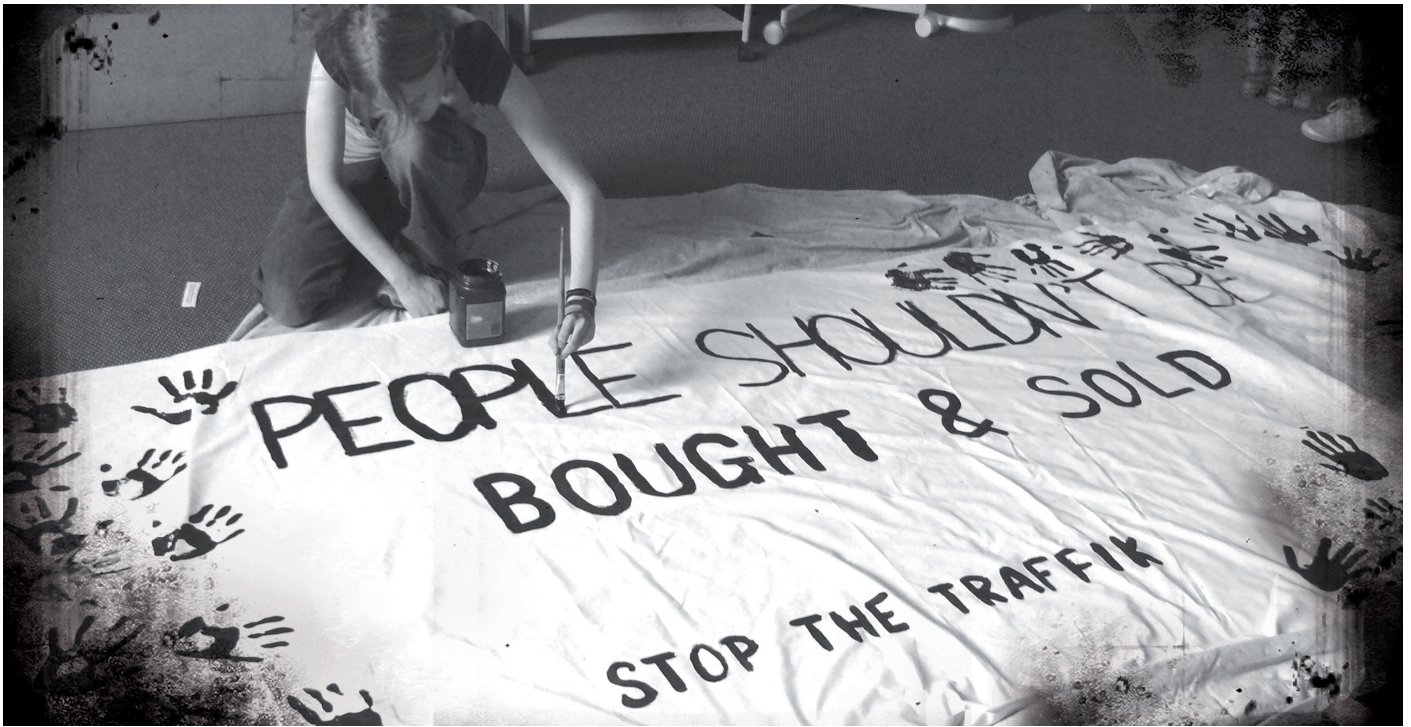 PEOPLE SHOULDN'T BE
BOUGHT & SOLD
STOP THE TRAFFIK